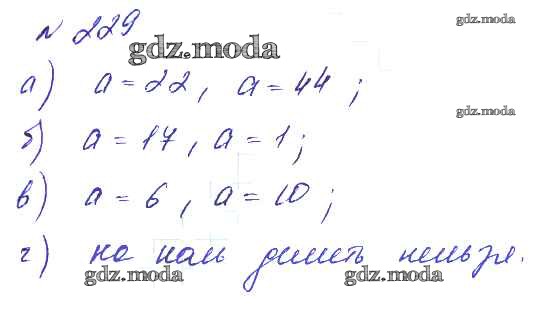 № 229
gdz.moda
gdz.moda
а) a = 22, a = 44;
gdz.moda
б) a = 17, a = 1;
в) a = 6, a = 10;
г) на ноль делить нельзя.
gdz.moda gdz.moda